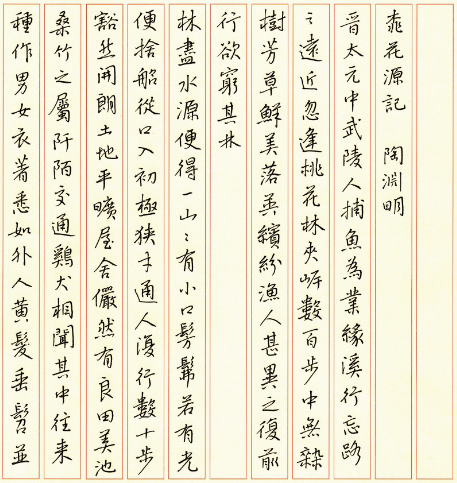 桃花源記　陶淵明
晉太元中武陵人捕魚為業緣溪行忘路
之遠近忽逢桃花林夾岸數百步中無雜
樹芳草鮮美落英繽紛漁人甚異之復前
行欲窮其林
林盡水源便得一山山有小口髣髴若有光
便捨船從口入初極狹才通人復行數十步
豁然開朗土地平曠屋舍儼然有良田美池
桑竹之屬阡陌交通鷄犬相聞其中往来
種作男女衣著悉如外人黃髮垂髫並